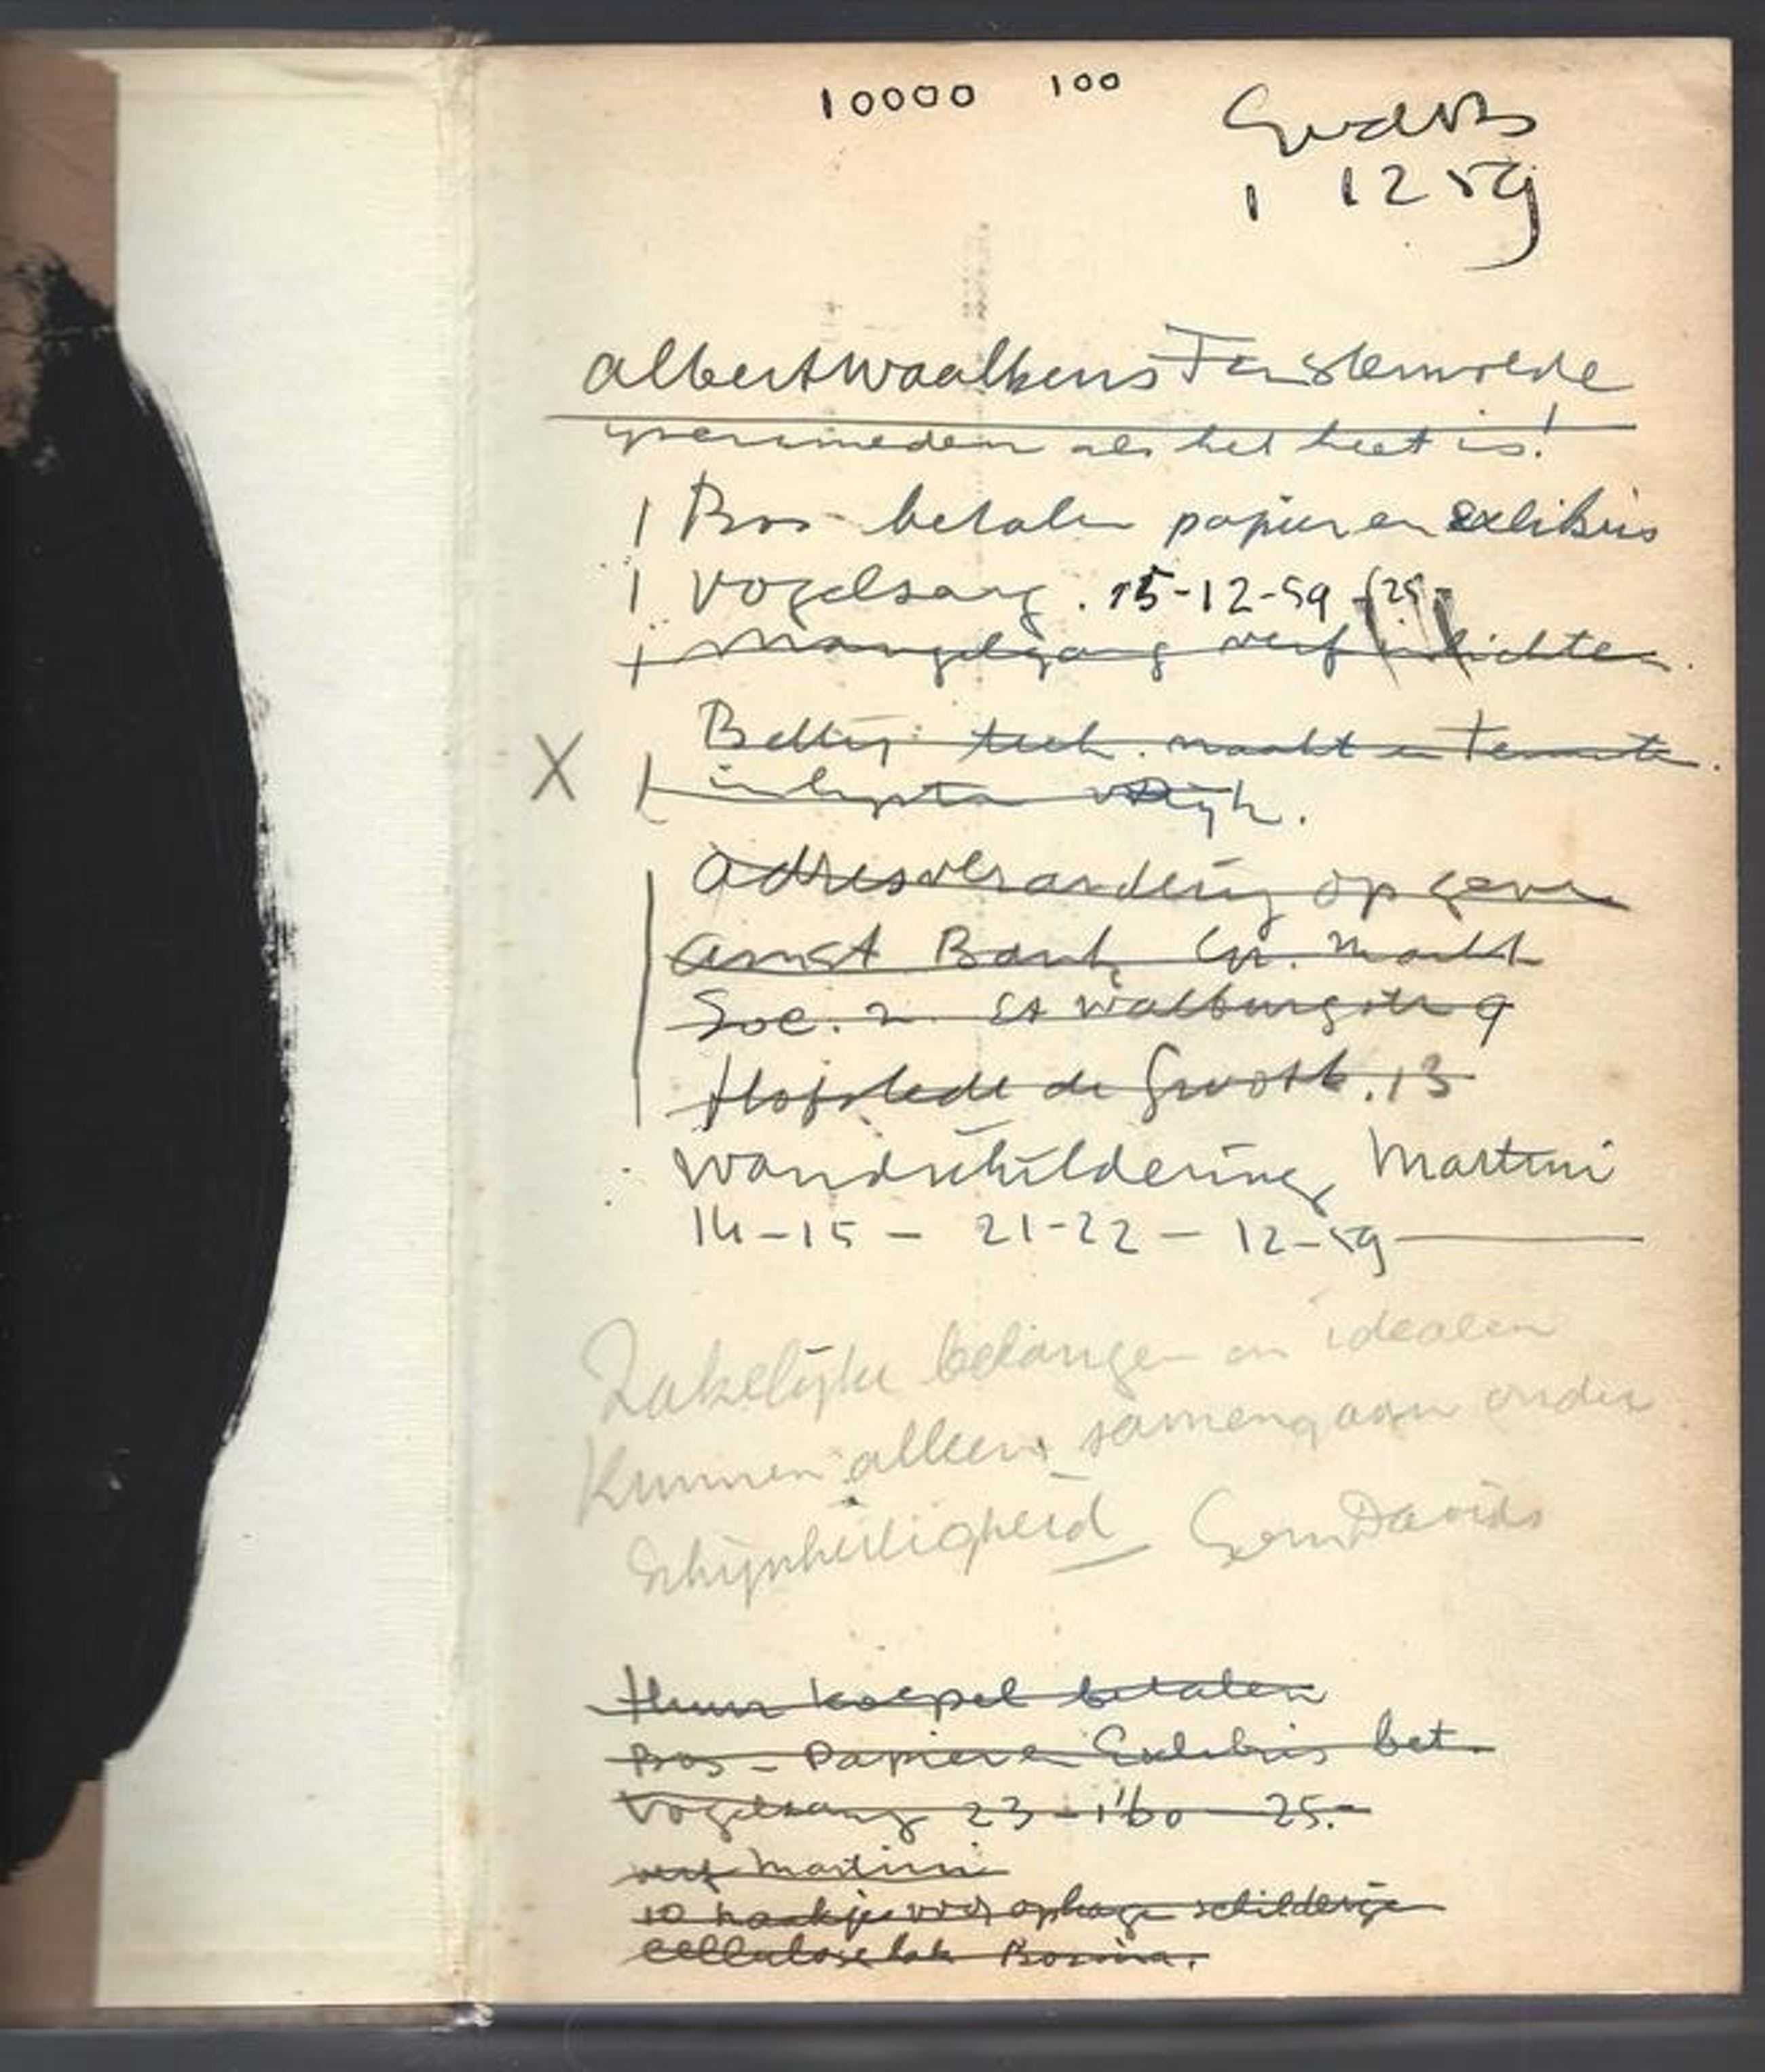 10000 100
1 12 59
albert waalkens Finsterwolde
als het heet is!
| Bos - betalen papier en exlibris
| Vogelsang. 15-12-59 f 25,-
verf
Betty naakt en
adresverandering opgeven
Amst Bank Gr. Markt
Soc. St Walburgstr 9
Hofstede de Grootk. 13
wandschildering Martini
14-15 - 21-22 - 12-59
Zakelijke belangen en idealen
kunnen alleen samengaan onder
schijnheiligheid
Huur koepel betalen
Bos - Papier en Exlibris bet.
Vogelsang 23-1'60 25.-
verf Martini
10 haakjes voor ophange schilderijen
celluloselak